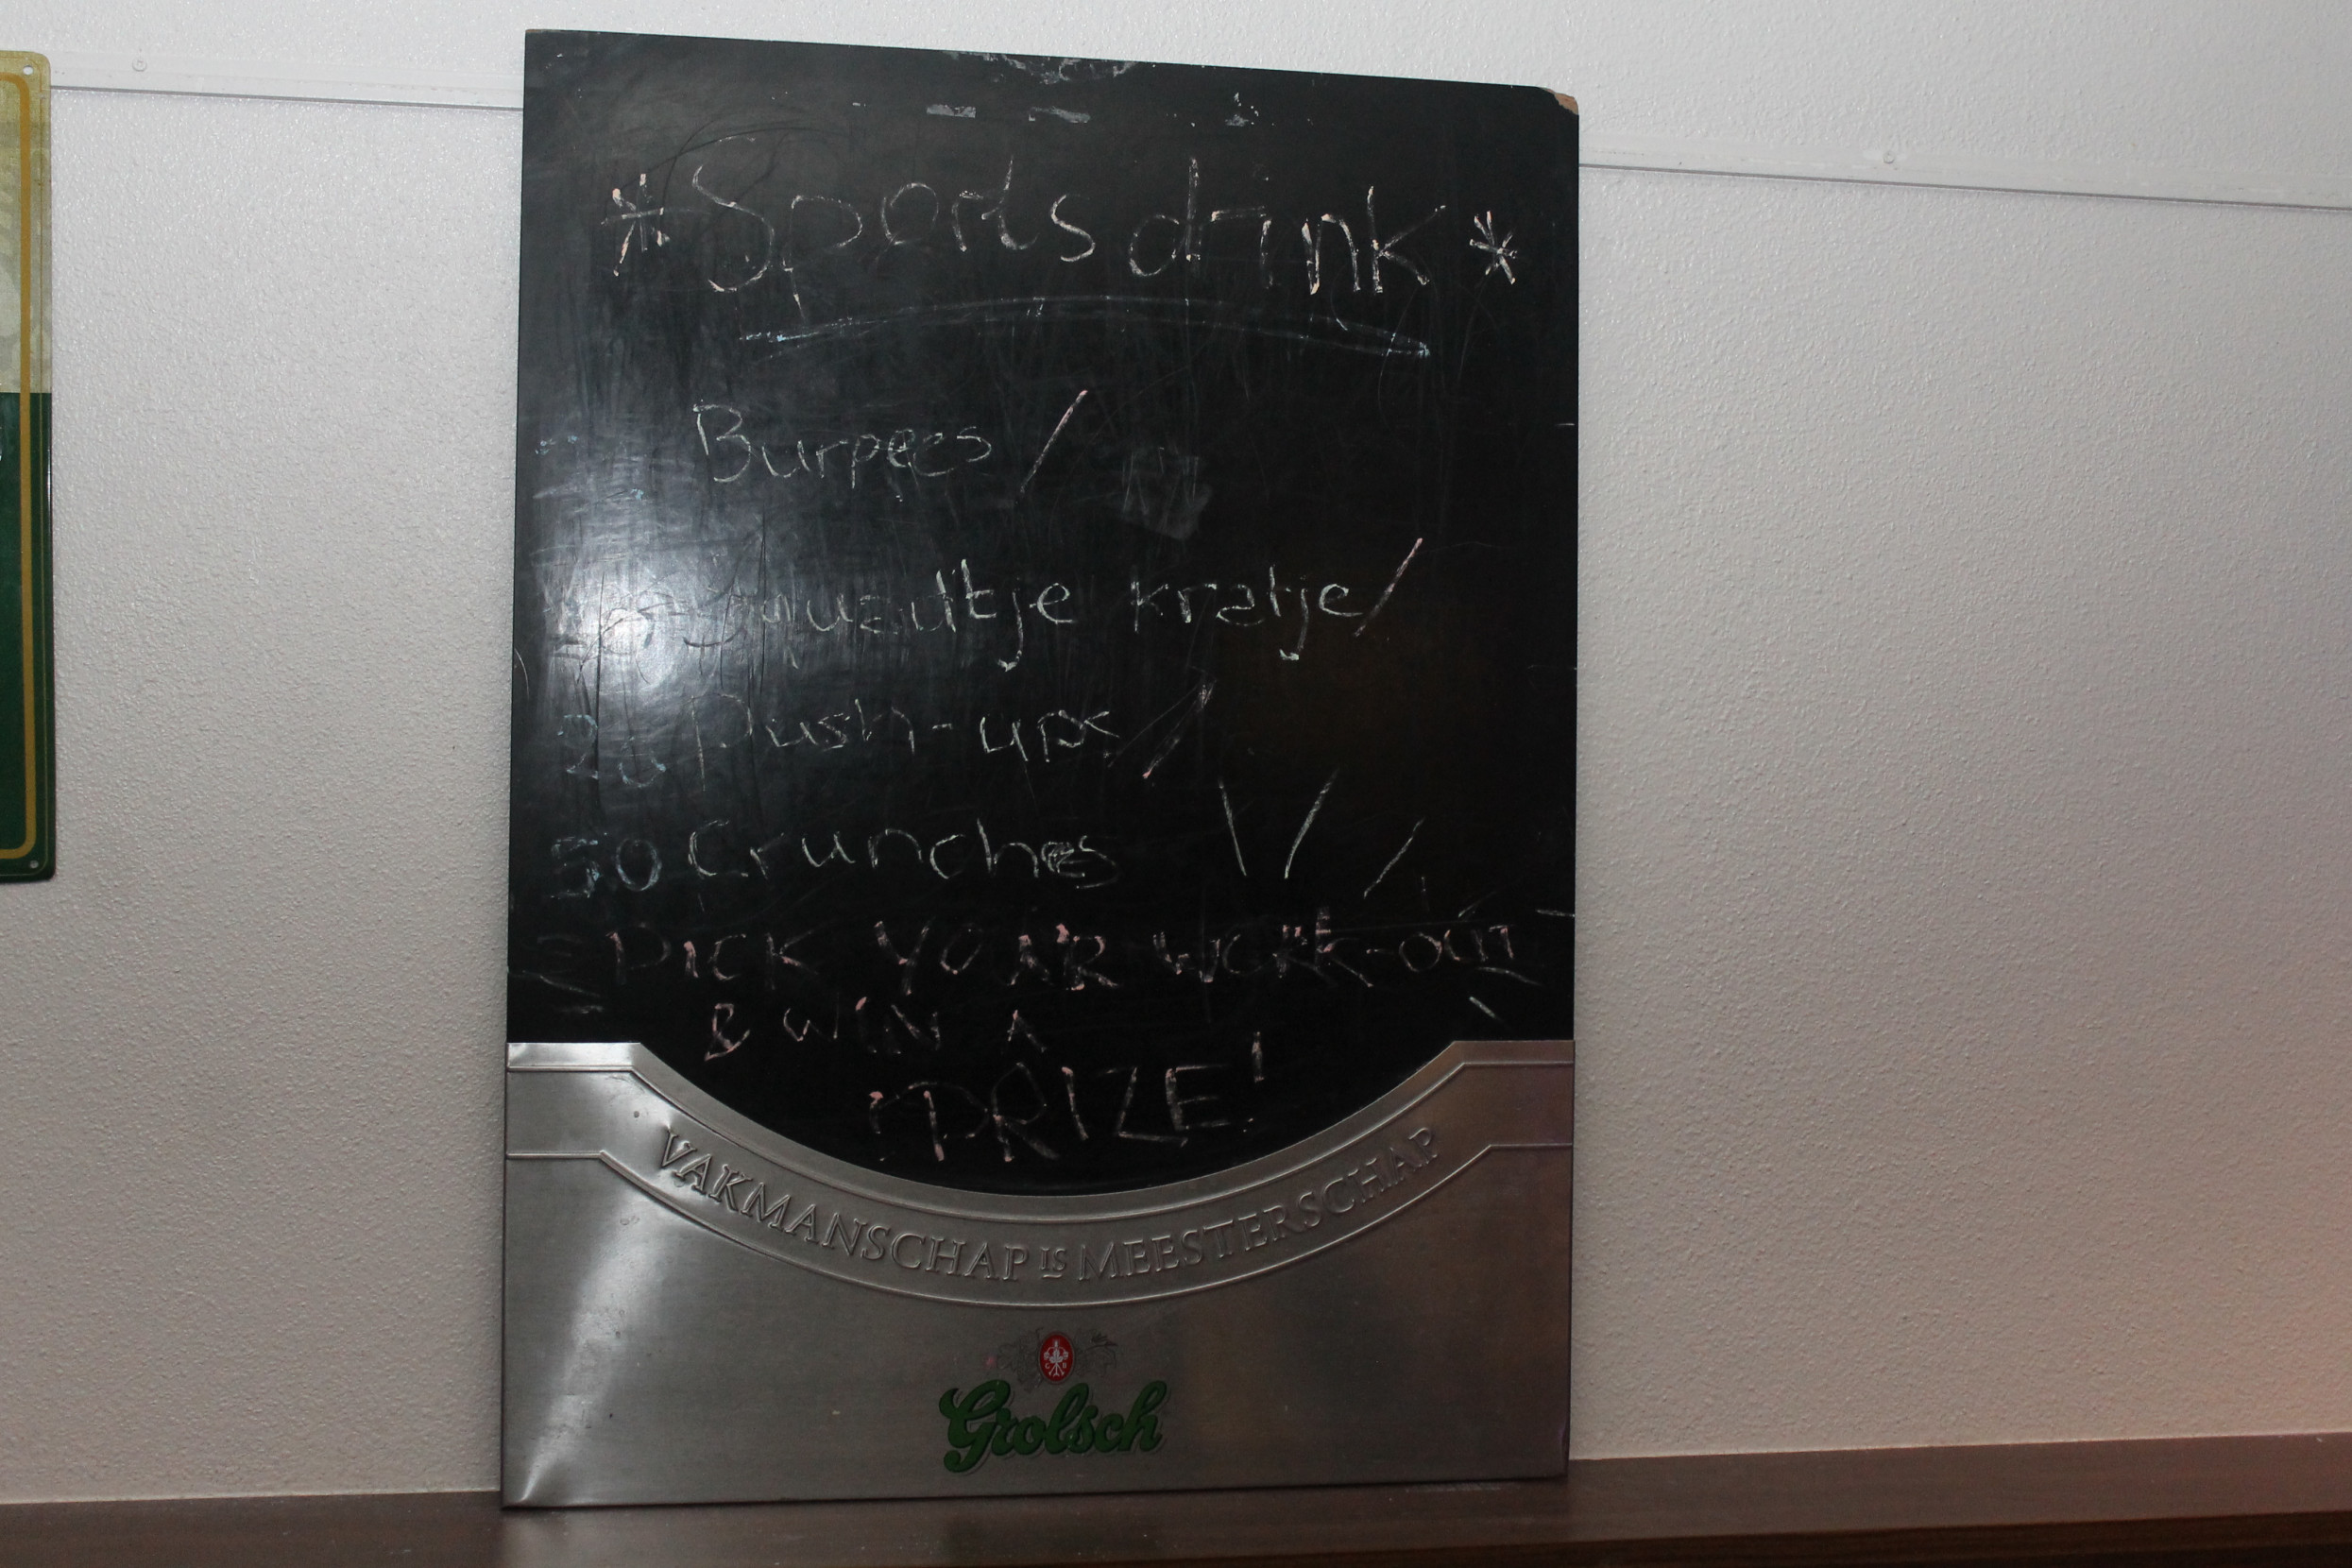 * Sportsdrink *
Burpees /
squadtje kratje /
20 Push-ups /
50 Crunches \ /
PICK YOUR WORK-OUT
& WIN A
PRIZE!
VAKMANSCHAP IS MEESTERSCHAP
Grolsch